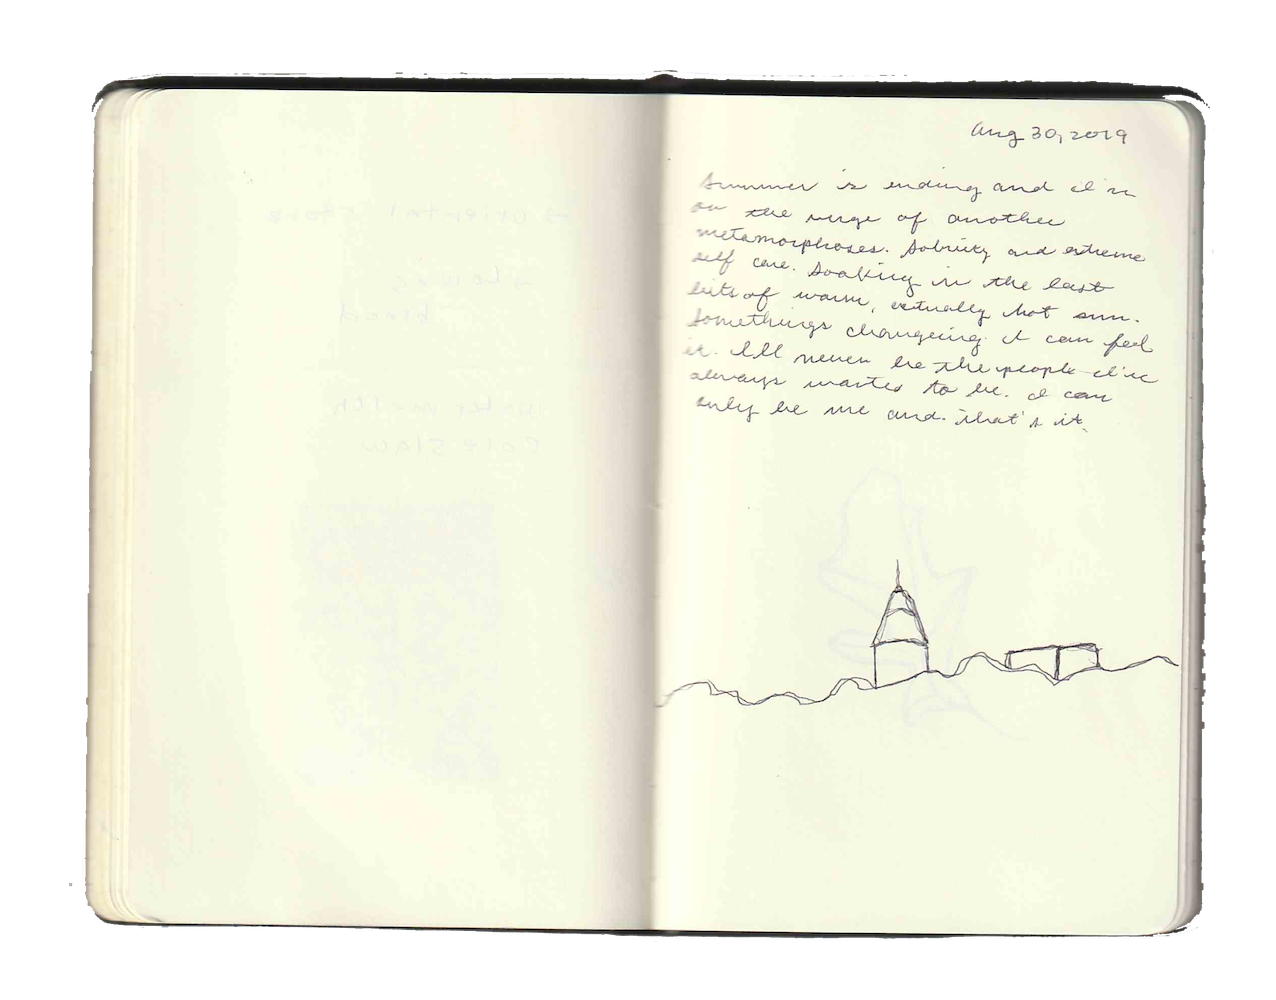 Aug 30, 2019
Summer is ending and I'm
on the verge of another
metamorphoses. Sobriety and extreme
self care. Soaking in the last
bits of warm, actually hot sun.
Somethings changeing I can feel
it. I'll never be the people I've
always wanted to be. I can
only be me and. That's it.
→ oriental
blood
Cole slaw